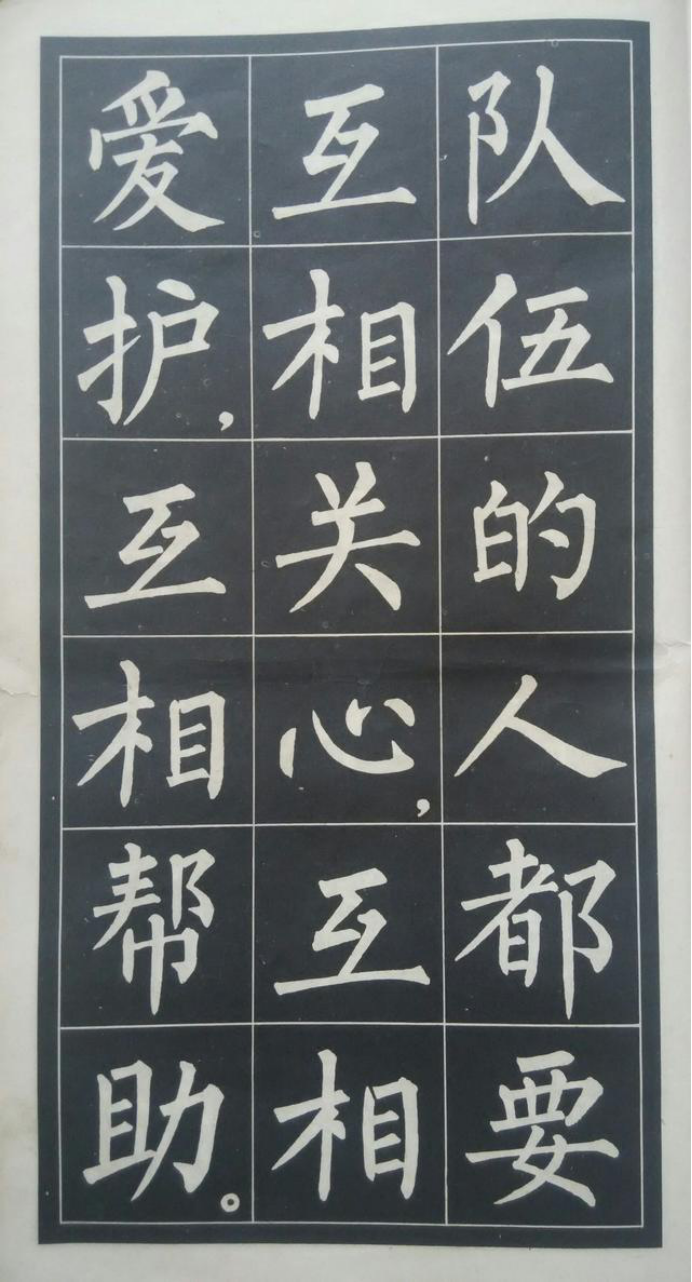 队伍的人都要
互相关心，互相
爱护，互相帮助。